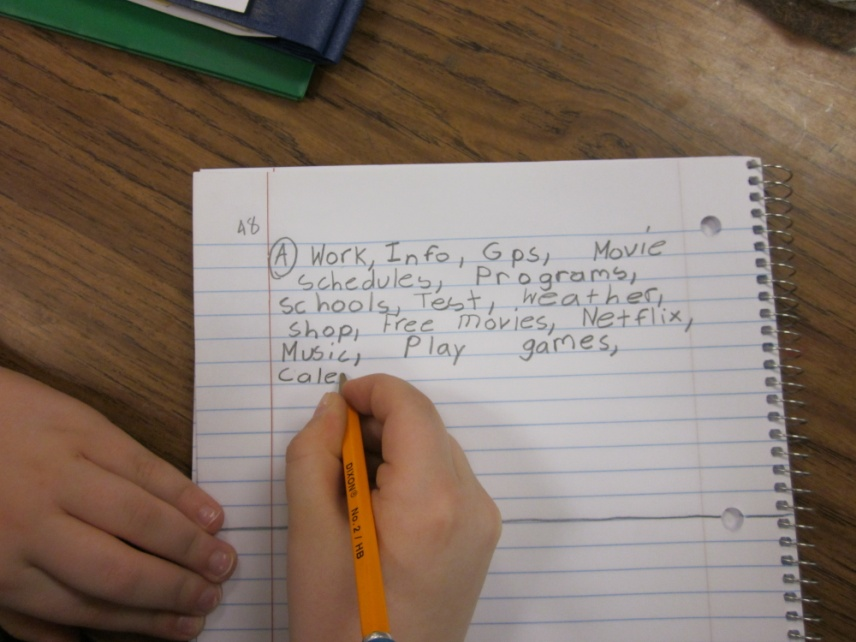 48
Ⓐ Work, Info, Gps, Movie
schedules, Programs,
schools, Test, weather,
shop, Free movies, Netflix,
Music, Play games,
Cale
DIXON® No. 2 / HB